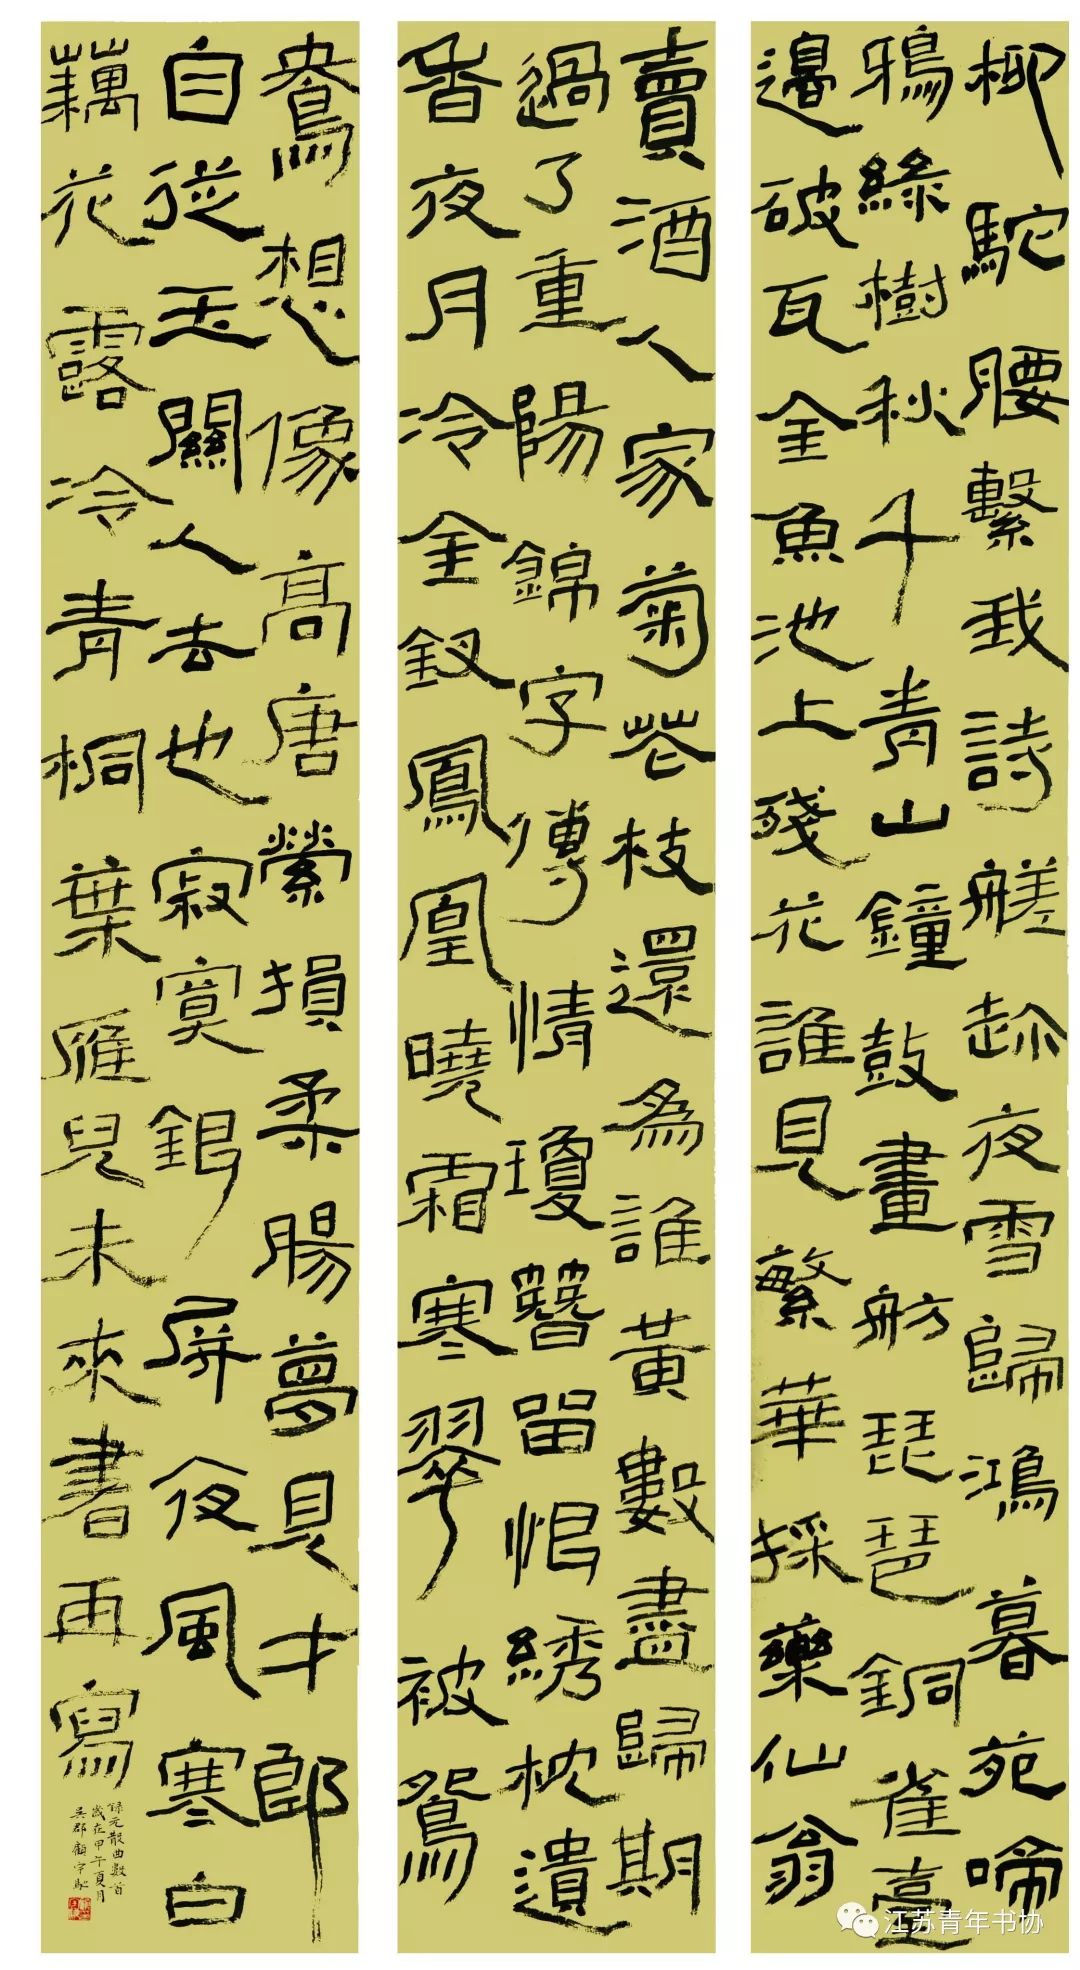 柳駝腰繫我詩艖趂夜雪歸鴻暮苑啼
鴉綠樹秋千青山鐘鼓畫舫琵琶銅雀臺
邊破瓦金魚池上殘花誰見繁華採藥仙翁
賣酒人家菊花枝還為誰黃數盡歸期
過了重陽錦字傳情瓊簪留恨綉枕遺
香夜月冷金釵鳳凰曉霜寒翠被鴛
鴦想像高唐縈損柔腸夢見才郎
自從玉關人去也寂寞銀屏夜風寒白
藕花露冷青桐葉雁兒未來書再寫
錄元散曲數首
歲在甲午夏月
吳郡顧宇馳
江苏青年书协